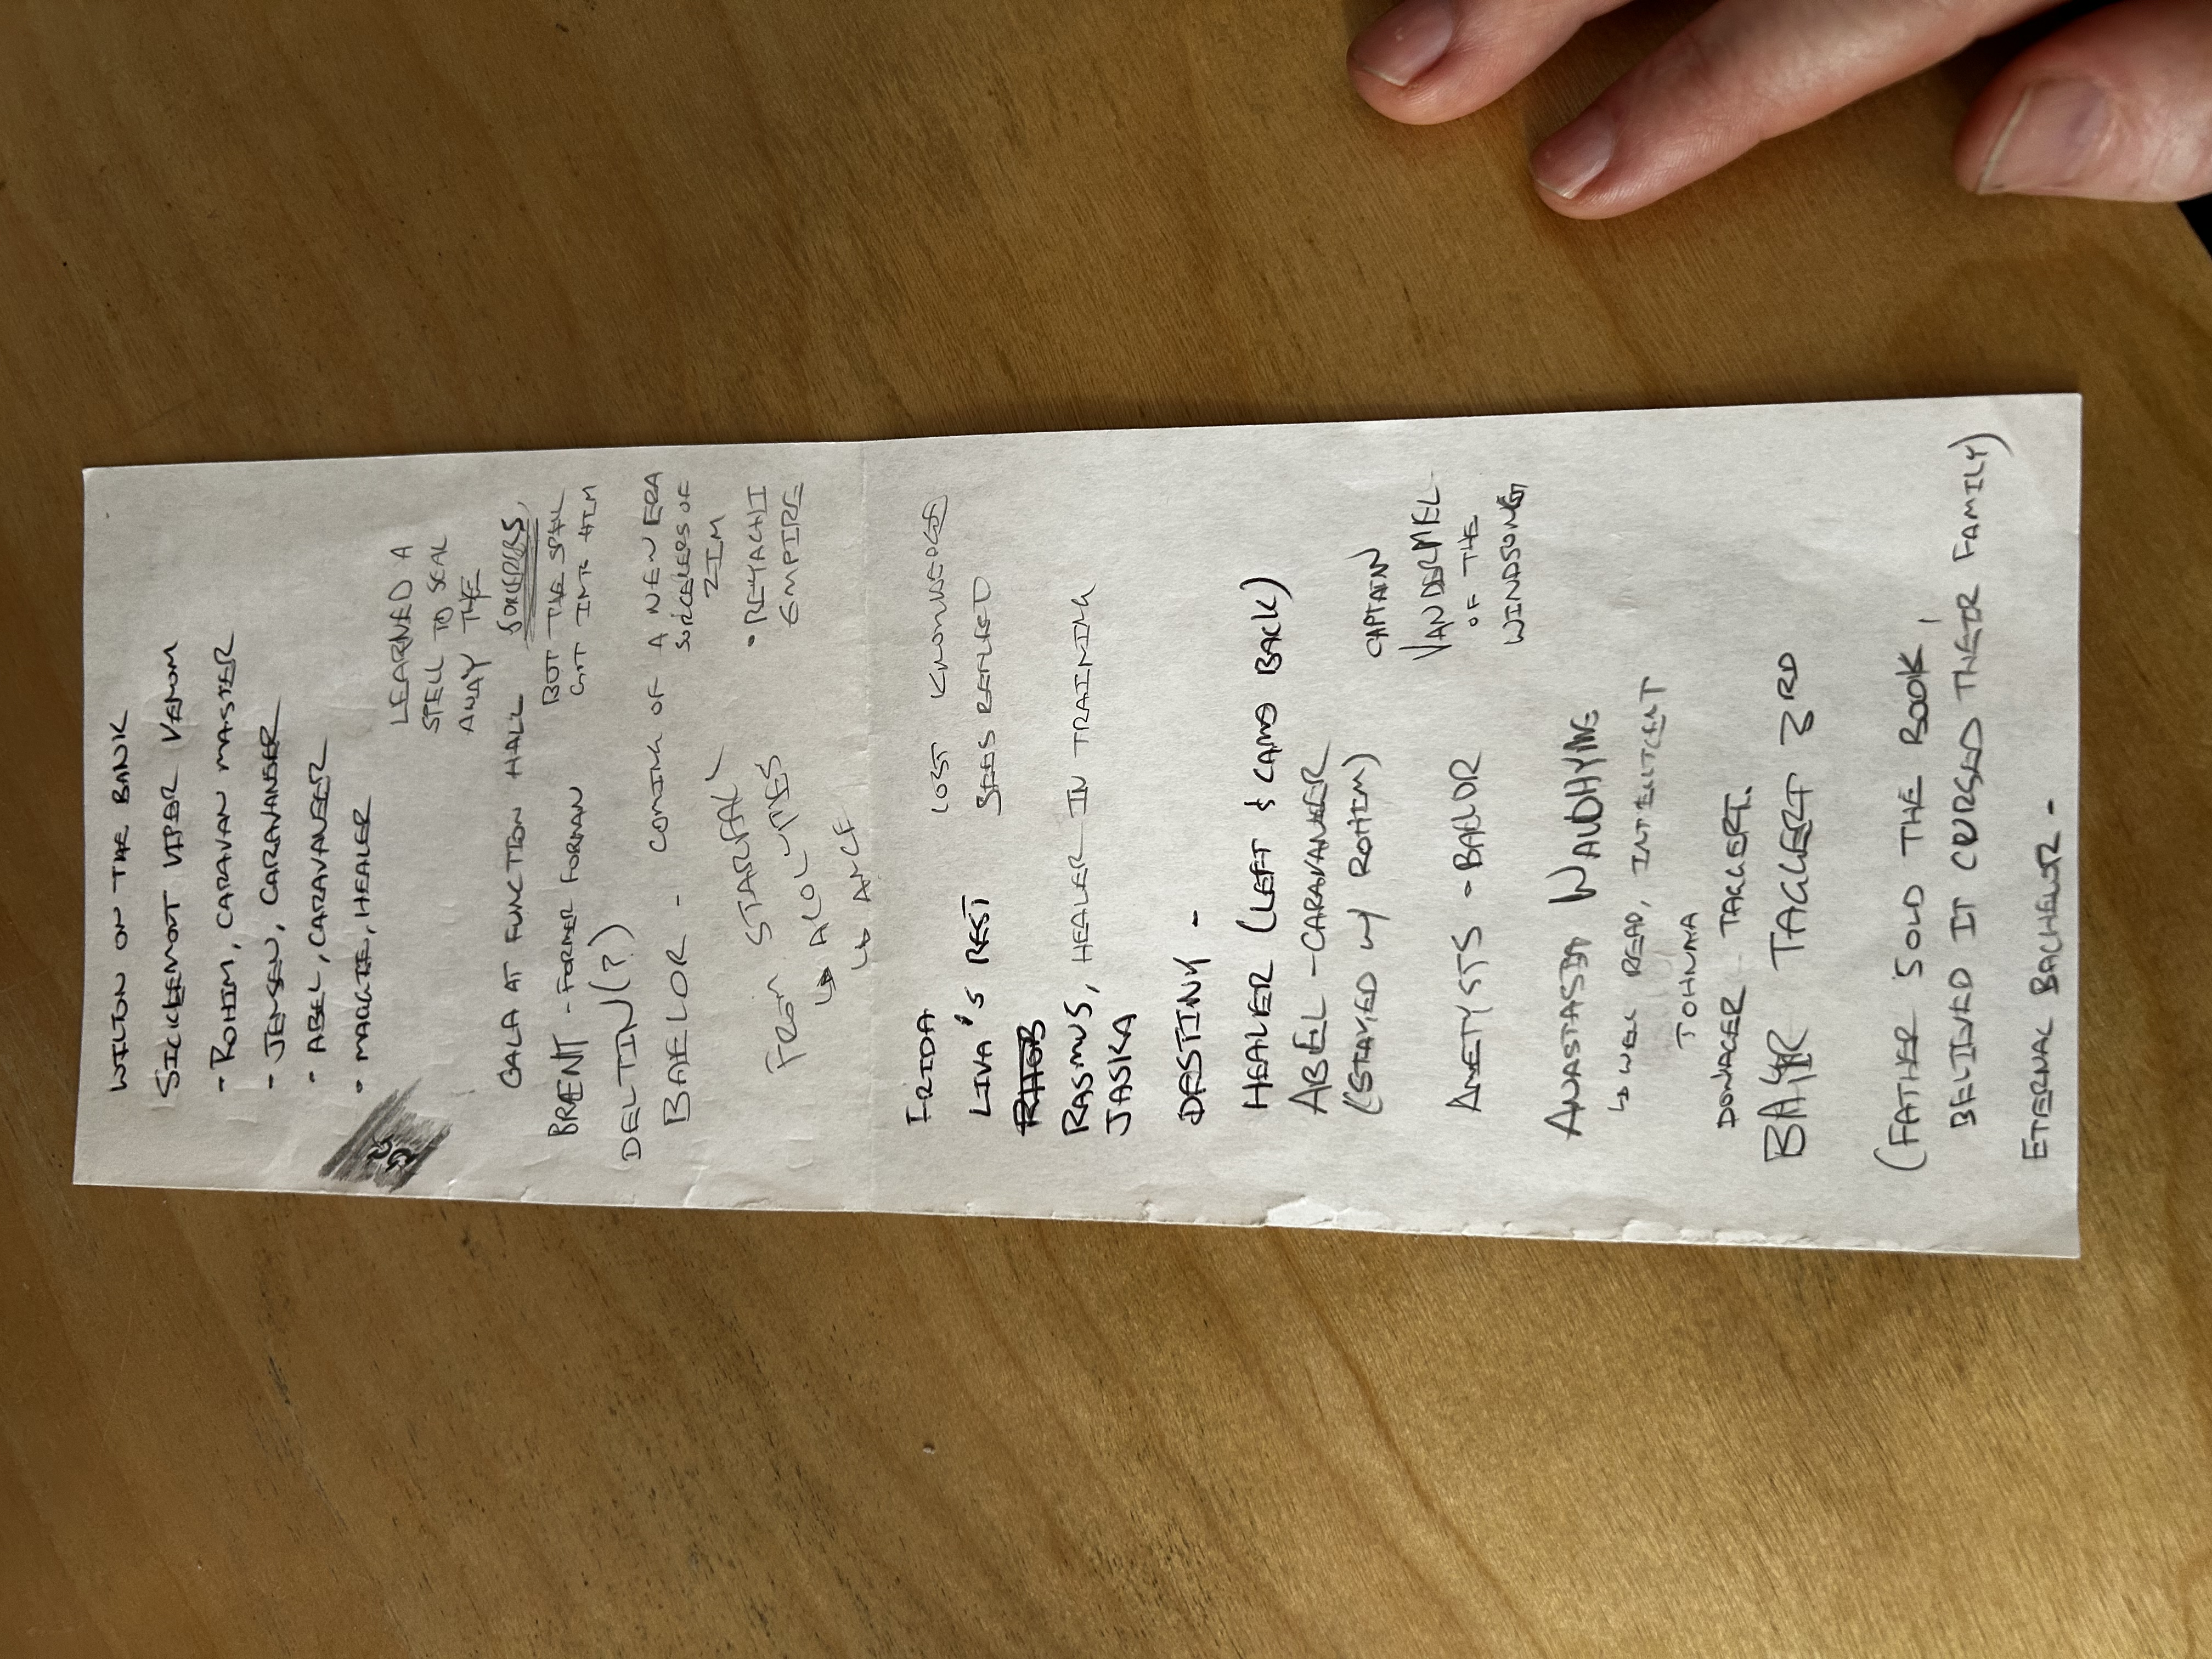 WILTON ON THE BANK
SICKLEMOT VIPER VENOM
- ROHIM, CARAVAN MASTER
- JENSEN, CARAVANEER
• ABEL, CARAVANEER
• MAGGIE, HEALER
LEARNED A
SPELL TO SEAL
AWAY THE
GALA AT FUNCTION HALL
BUT THE SEAL
BRENT - FORMER
GOT INTO HIM
DELTIN(?)
BAELOR - COMING OF A NEW ERA
SORCERERS OF
ZIM
FROM STARFALL
• REYACHI
EMPIRE
IRIDA
LOST KNOWLEDGE
LIVA'S REST
RASMUS, HEALER IN TRAINING
JASKA
DESTINY -
HEALER (LEFT & CAME BACK)
ABEL - CARAVANEER
(STAYED W/ ROHIM)
CAPTAIN
VANDERMEL
OF THE
WINDSONG
AMETYSTS - BAELOR
ANASTASIA
↳ WELL READ, INTELLIGENT
DOWAGER TAGGERT.
TAGGERT 3RD
(FATHER SOLD THE BOOK,
BELIEVED IT CURSED THEIR FAMILY)
ETERNAL BACHELOR -